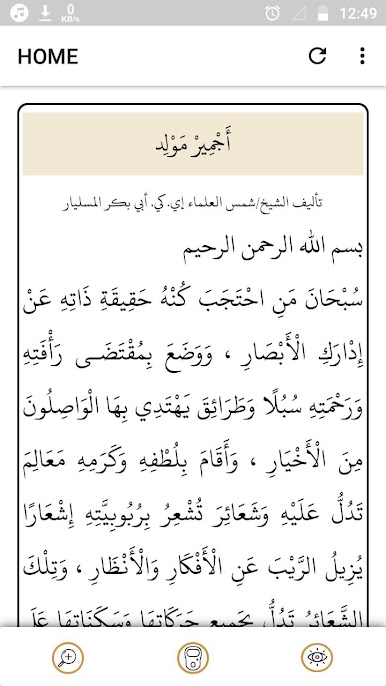 0
KB/s
12:49
HOME
أَجْمِيرْ مَوْلِد
تأليف الشيخ/شمس العلماء إي.كي. أبي بكر المسليار
بسم الله الرحمن الرحيم
سُبْحَانَ مَنِ احْتَجَبَ كُنْهُ حَقِيقَةِ ذَاتِهِ عَنْ
إِدْارَكِ الْأَبْصَارِ ، وَوَضَعَ بِمُقْتَضَى رَأْفَتِهِ
وَرَحْمَتِهِ سُبُلًا وَطَرَائِقَ يَهْتَدِي بِهَا الْوَاصِلُونَ
مِنَ الْأَخْيَارِ ، وَأَقَامَ بِلُطْفِهِ وَكَرَمِهِ مَعَالِمَ
تَدُلُّ عَلَيْهِ وَشَعَائِرَ تُشْعِرُ بِرُبُوبِيَّتِهِ إِشْعَارًا
يُزِيلُ الرَّيْبَ عَنِ الْأَفْكَارِ وَالْأَنْظَارِ ، وَتِلْكَ
الشَّعَائِرُ تَدُلُّ بِجَمِيعِ حَرَكَاتِهَا وَسَكَنَاتِهَا عَلَى